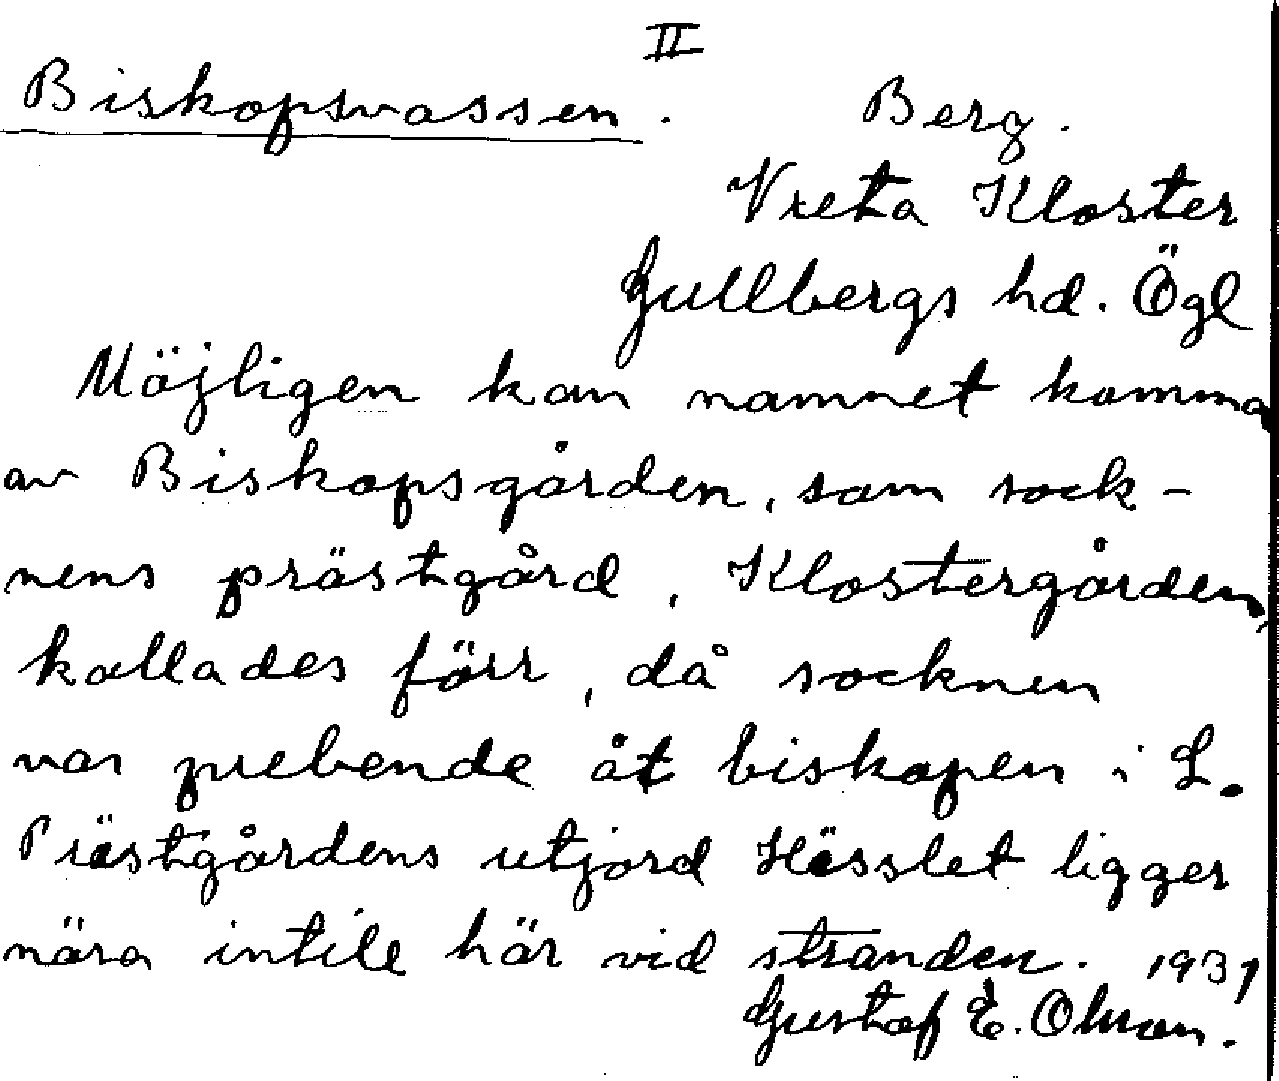 II
Biskopsvassen. Berg.
Vreta Kloster
Gullbergs hd. Ögl
Möjligen kan namnet komma
av Biskopsgården, som sock-
nens prästgård, Klostergården,
kallades förr, då socknen
var prebende åt biskopen i L.
Prästgårdens utjord Hässlet ligger
nära intill här vid stranden. 1931
Gustaf E. Olsson.